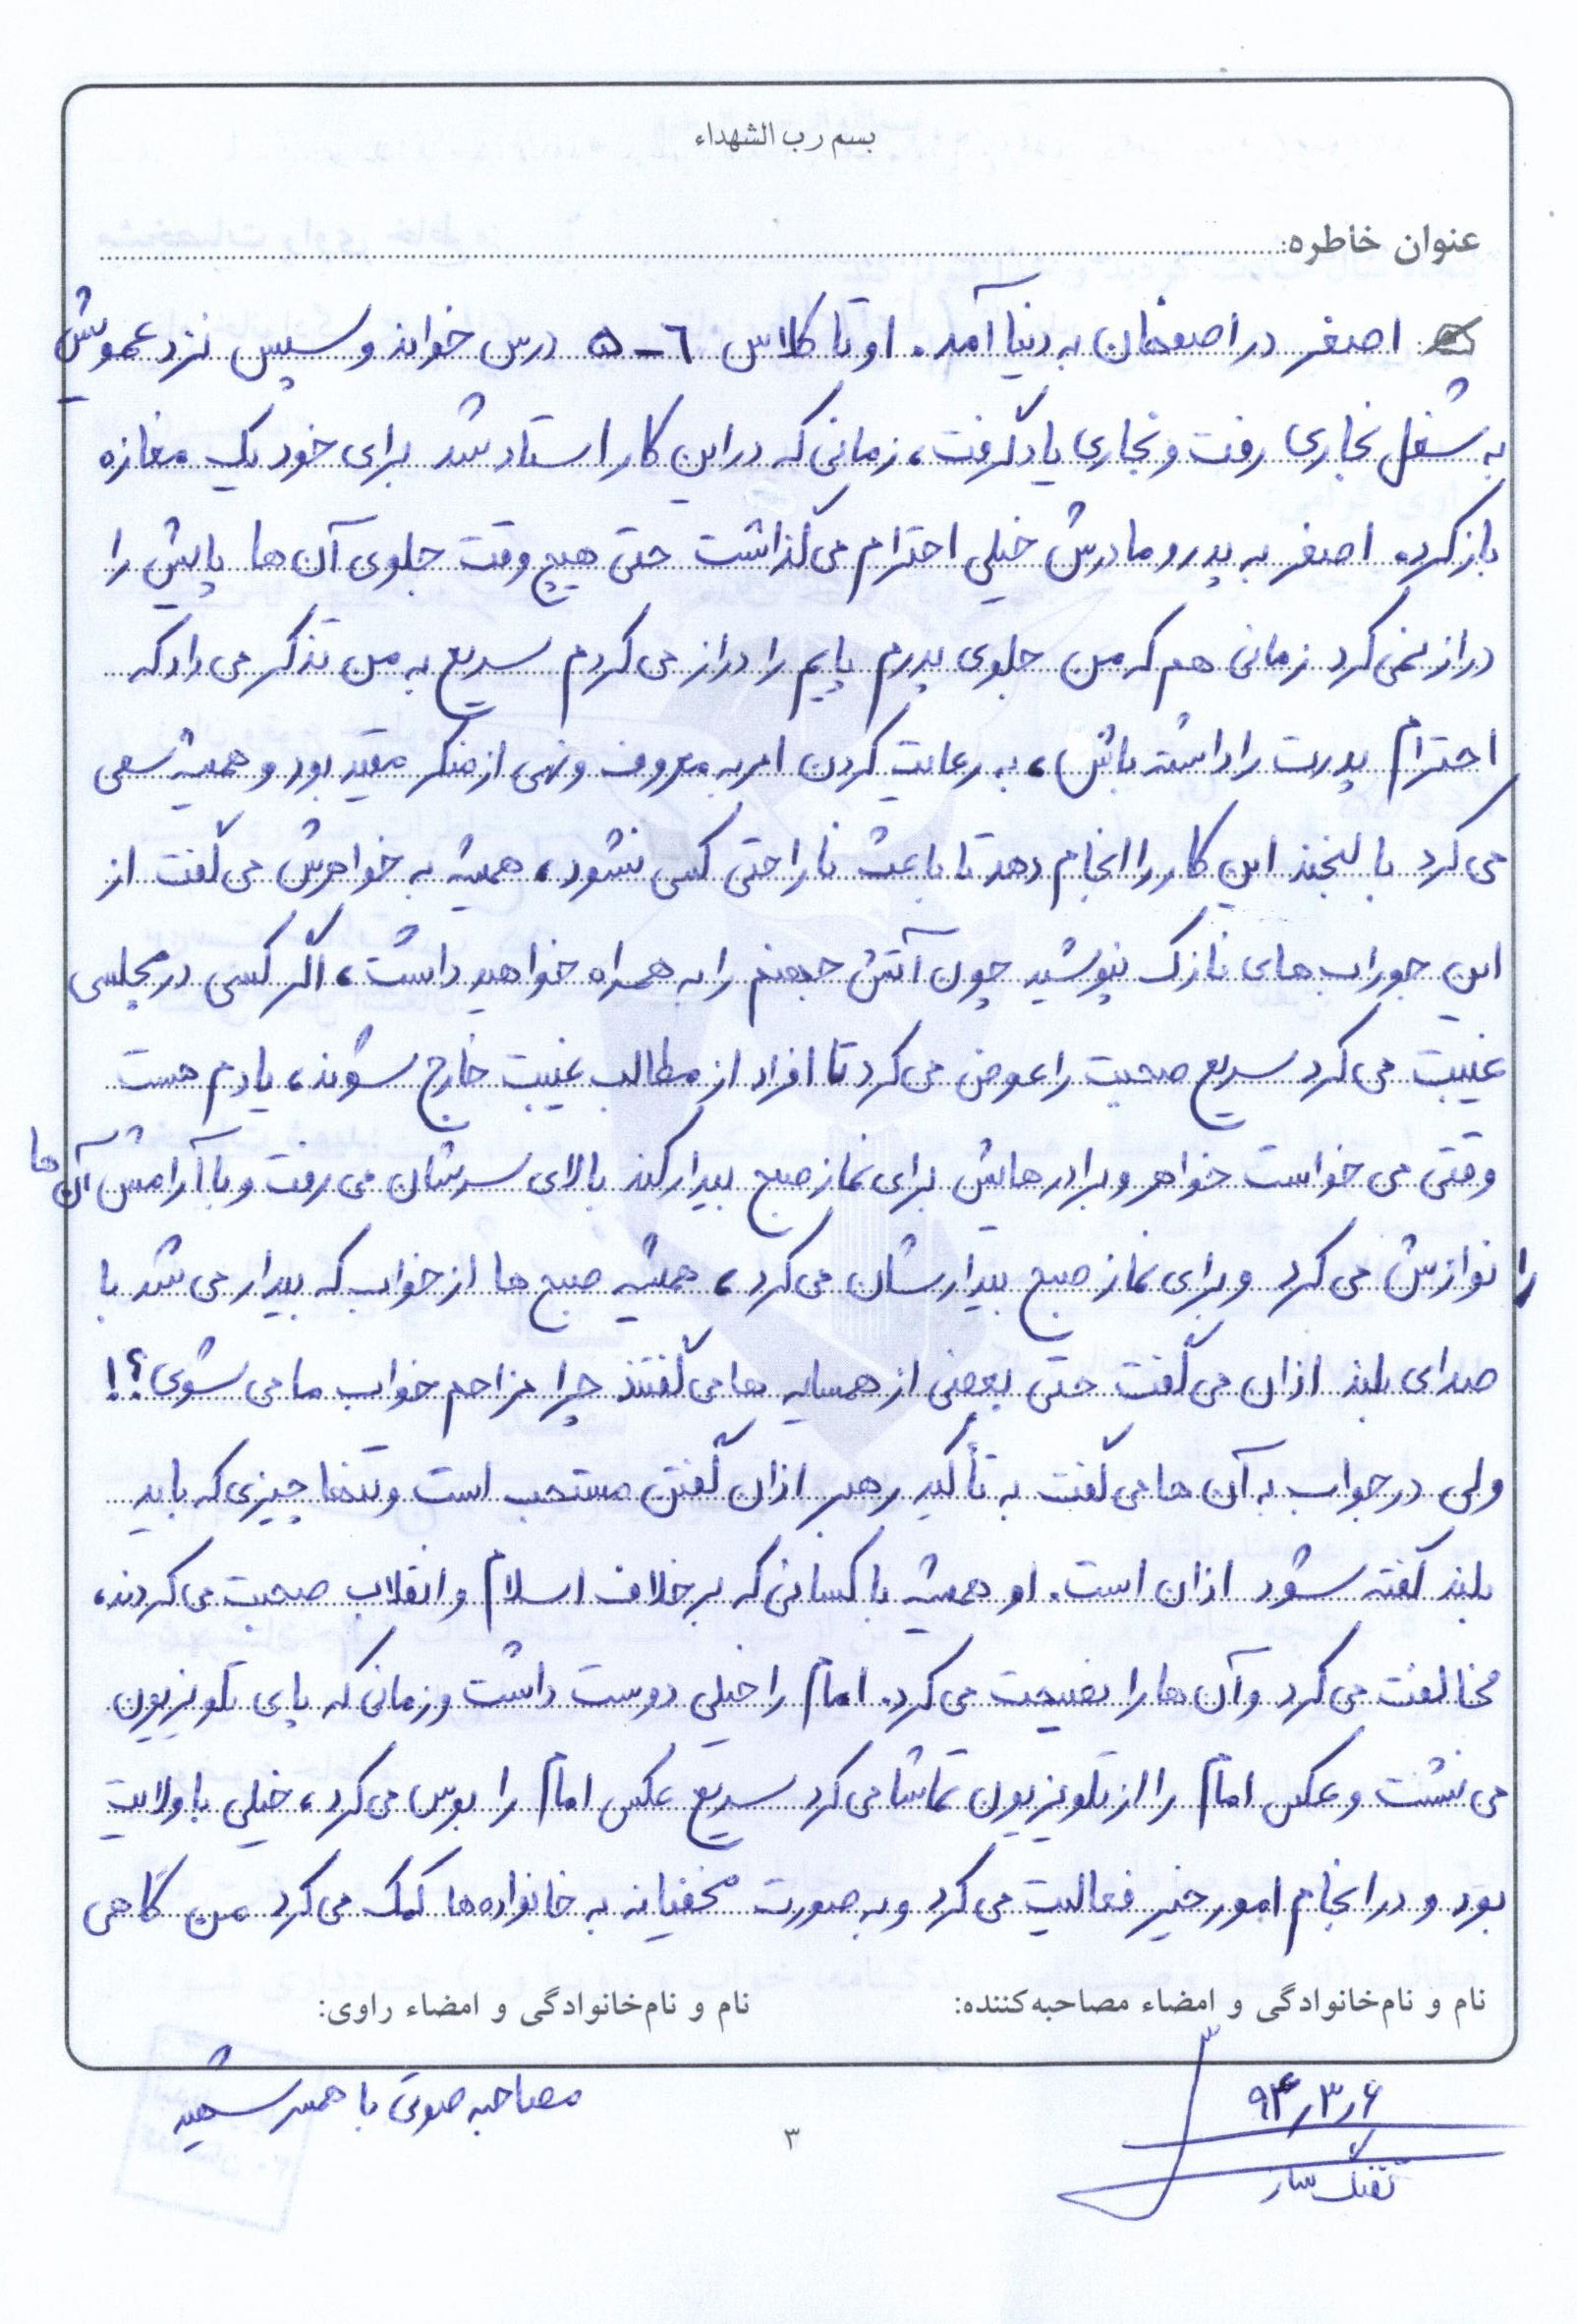 بسم رب الشهداء
عنوان خاطره:
اصغر در اصفهان به دنیا آمد. او تا کلاس ۶-۵ درس خواند و سپس نزد عمویش
به شغل نجاری رفت و نجاری یاد گرفت، زمانی که در این کار استاد شد برای خود یک مغازه
باز کرد. اصغر به پدر و مادرش خیلی احترام می گذاشت حتی هیچ وقت جلوی آن ها پایش را
دراز نمی کرد زمانی هم که من جلوی پدرم پایم را دراز می کردم سریع به من تذکر می داد که
احترام پدرت را داشته باش، به رعایت کردن امر به معروف و نهی از منکر مقید بود و همیشه سعی
می کرد با لبخند این کار را انجام دهد تا باعث ناراحتی کسی نشود، همیشه به خواهرش می گفت از
این جوراب های نازک نپوشید چون آتش جهنم را به همراه خواهید داشت، اگر کسی در مجلسی
غیبت می کرد سریع صحبت را عوض می کرد تا افراد از مطالب غیبت خارج شوند، یادم هست
وقتی می خواست خواهر و برادرهایش برای نماز صبح بیدار کند بالای سرشان می رفت و با آرامش آن ها
را نوازش می کرد و برای نماز صبح بیدارشان می کرد، همیشه صبح ها از خواب که بیدار می شد با
صدای بلند اذان می گفت حتی بعضی از همسایه ها می گفتند چرا مزاحم خواب ما می شوی؟!
ولی در جواب به آن ها می گفت به تأکید رهبر اذان گفتن مستحب است و تنها چیزی که باید
بلند گفته شود اذان است. او همیشه با کسانی که بر خلاف اسلام و انقلاب صحبت می کردند،
مخالفت می کرد و آن ها را نصیحت می کرد. امام را خیلی دوست داشت و زمانی که پای تلویزیون
می نشست و عکس امام را از تلویزیون تماشا می کرد سریع عکس امام را بوس می کرد، خیلی با ولایت
بود و در انجام امور خیر فعالیت می کرد و به صورت مخفیانه به خانواده ها کمک می کرد من گاهی
نام و نام خانوادگی و امضاء مصاحبه کننده:
نام و نام خانوادگی و امضاء راوی:
مصاحبه صوتی با همسر شهید
۹۴/۳/۶
تفنگ ساز
۳